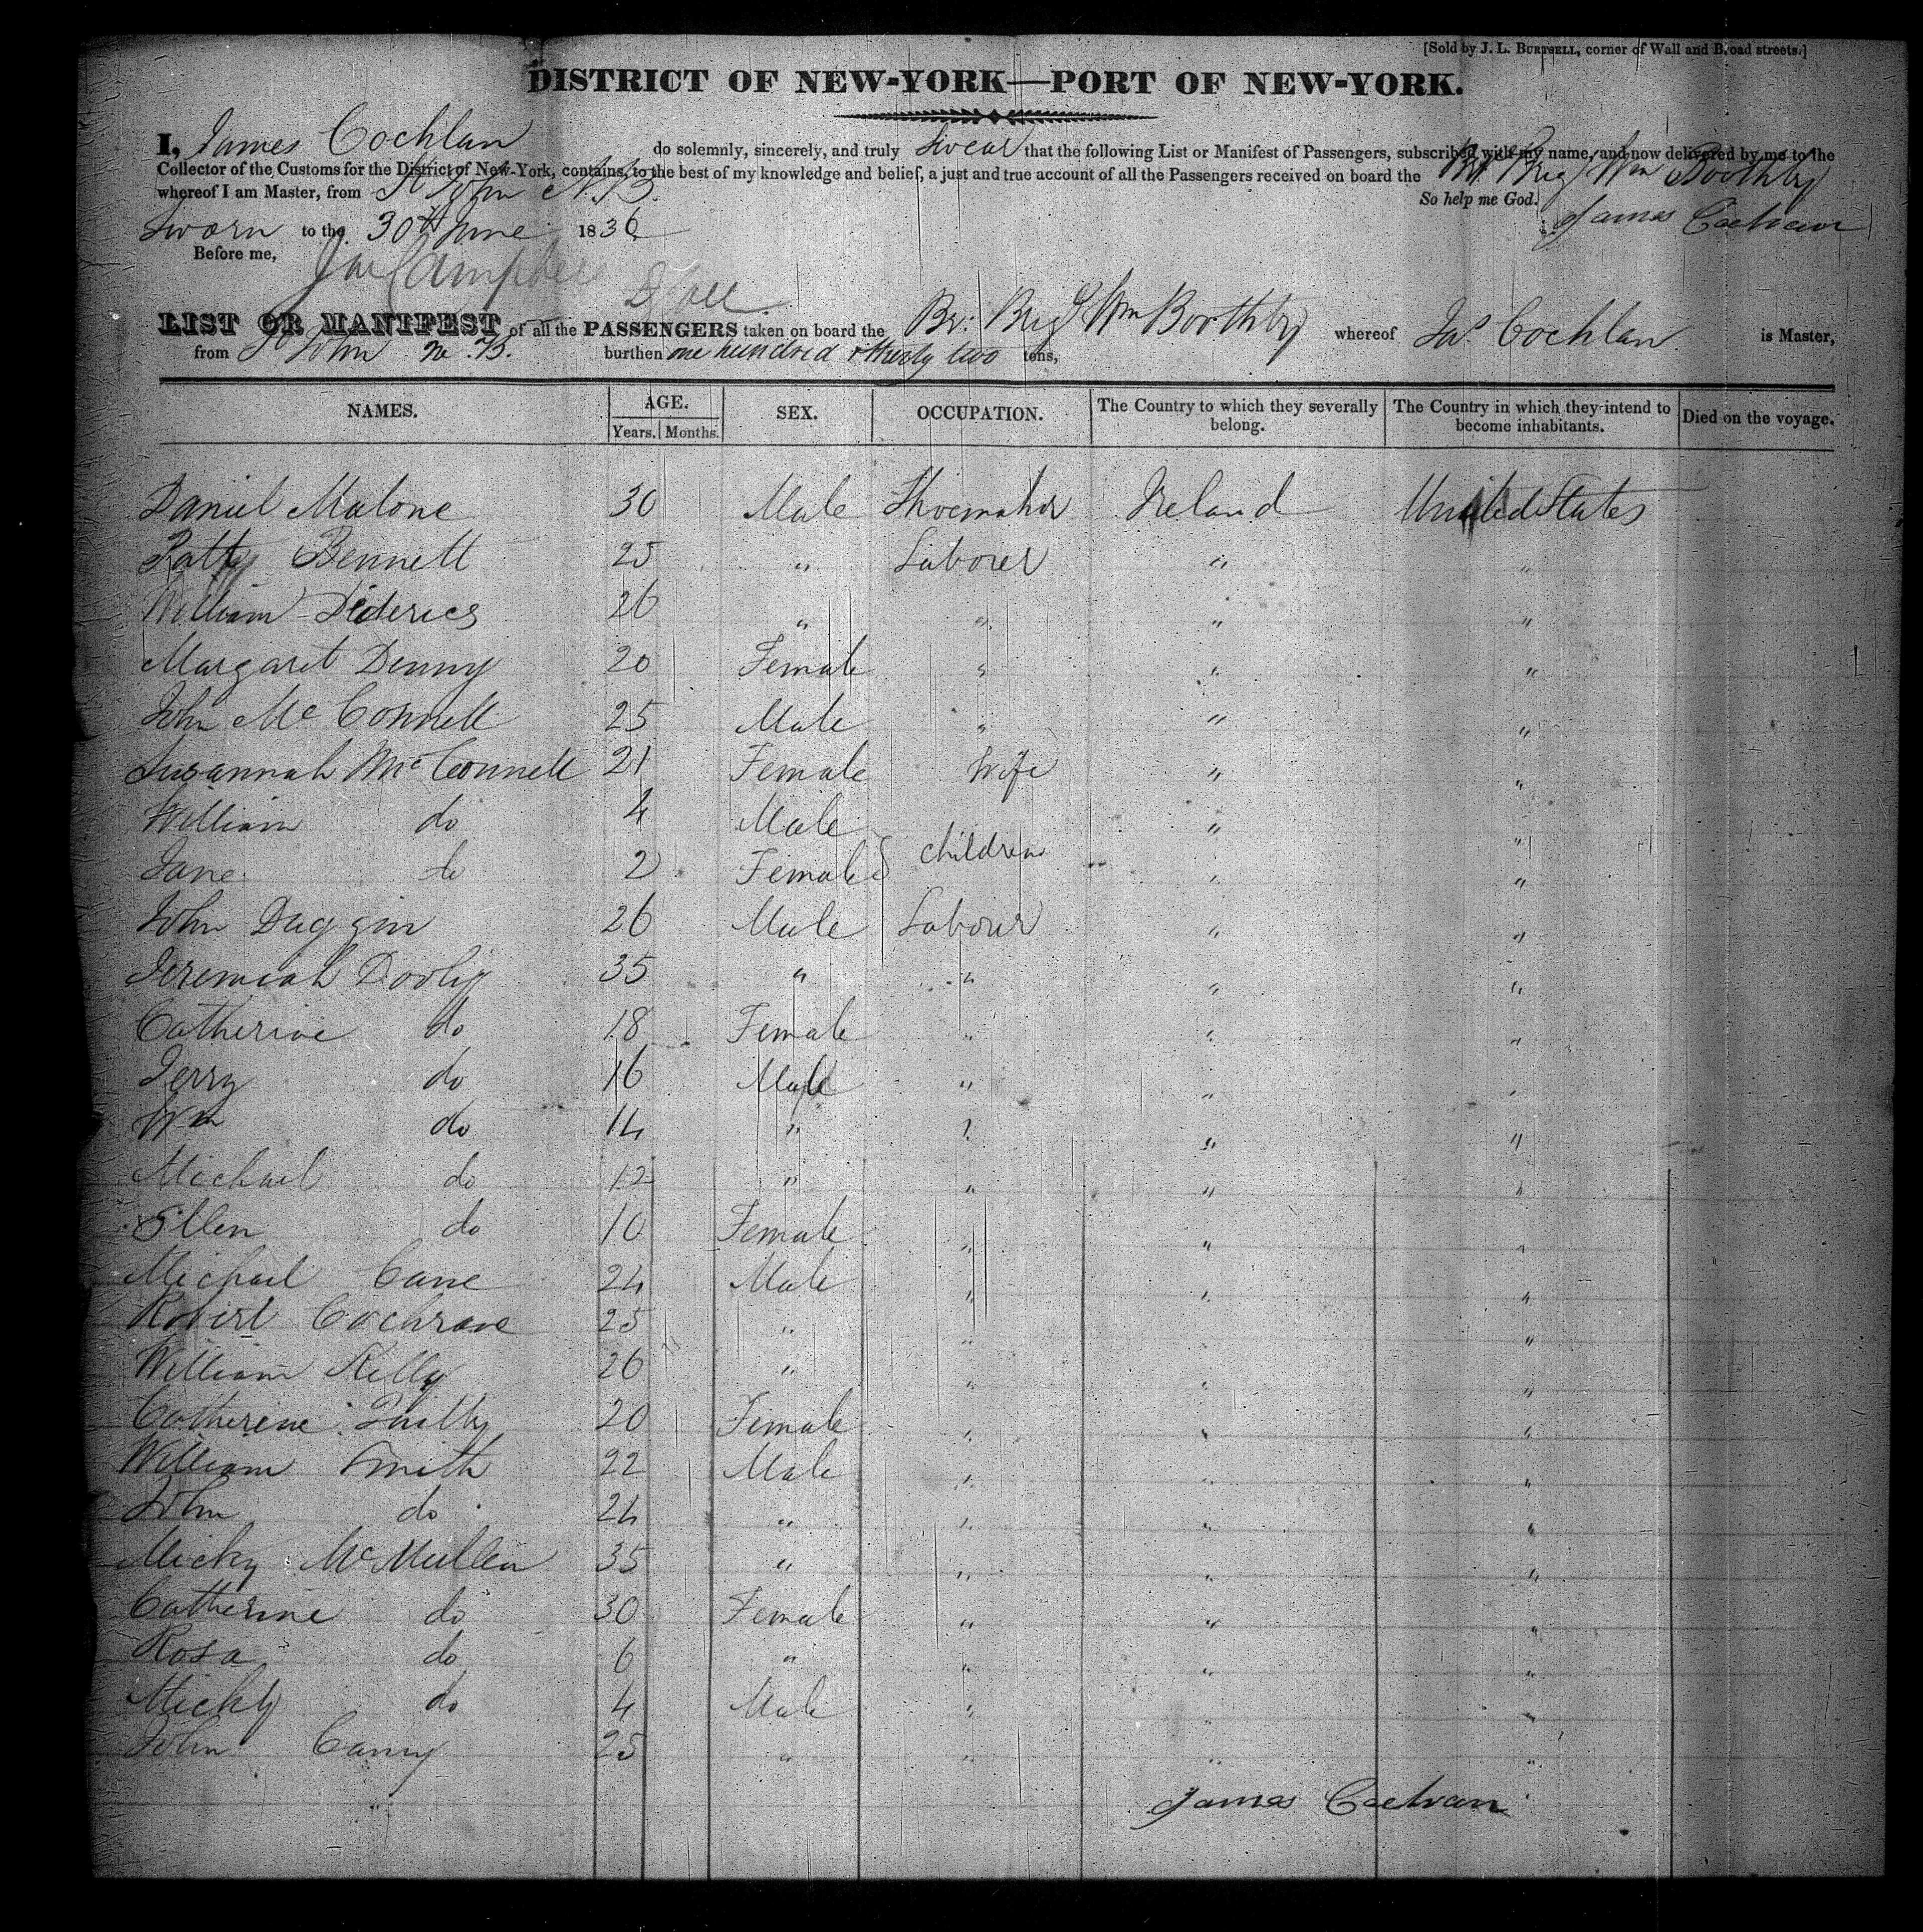 [Sold by J. L. BURTSELL, corner of Wall and Broad streets.]
DISTRICT OF NEW-YORK—PORT OF NEW-YORK.
I, James Cochlan do solemnly, sincerely, and truly Swear that the following List or Manifest of Passengers, subscribed with my name, and now delivered by me to the
Collector of the Customs for the District of New-York, contains, to the best of my knowledge and belief, a just and true account of all the Passengers received on board the Br. Brig Wm Boothby
whereof I am Master, from St John N.B. So help me God.
Sworn to the 30th June 1836 James Cochran
Before me, Campbell
D Coll
LIST OR MANIFEST of all the PASSENGERS taken on board the Br: Brig Wm Boothby whereof Jas. Cochlan is Master,
from St John N.B. burthen one hundred & thirty two tons,
NAMES. AGE. SEX. OCCUPATION. The Country to which they severally belong. The Country in which they intend to become inhabitants. Died on the voyage.
Years. Months.
Daniel Malone 30 Male Shoemaker Ireland United States
Patty Bennett 25 " Laborer " "
William Diderics 26 " " " "
Margaret Denny 20 Female " " "
John McConnell 25 Male " " "
Susannah McConnell 21 Female Wife " "
William do 4 Male " "
children
Jane do 2 Female " "
John Duggin 26 Male Labourer " "
Jeremiah Dooly 35 " " " "
Catherine do 18 Female " " "
Jerry do 16 Male " " "
Wm do 14 " " " "
Michael do 12 " " " "
Ellen do 10 Female " " "
Michael Cane 24 Male " " "
Robert Cochrane 25 " " " "
William Kelly 26 " " " "
Catherine 20 Female " " "
William Smith 22 Male " " "
John do 24 " " " "
Micky McMullen 35 " " " "
Catherine do 30 Female " " "
Rosa do 6 " " " "
Micky do 4 Male " " "
John Canny 25 " " " "
James Cochran